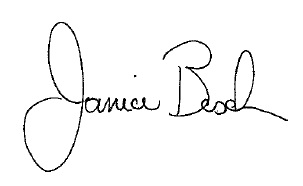 Janice Besch